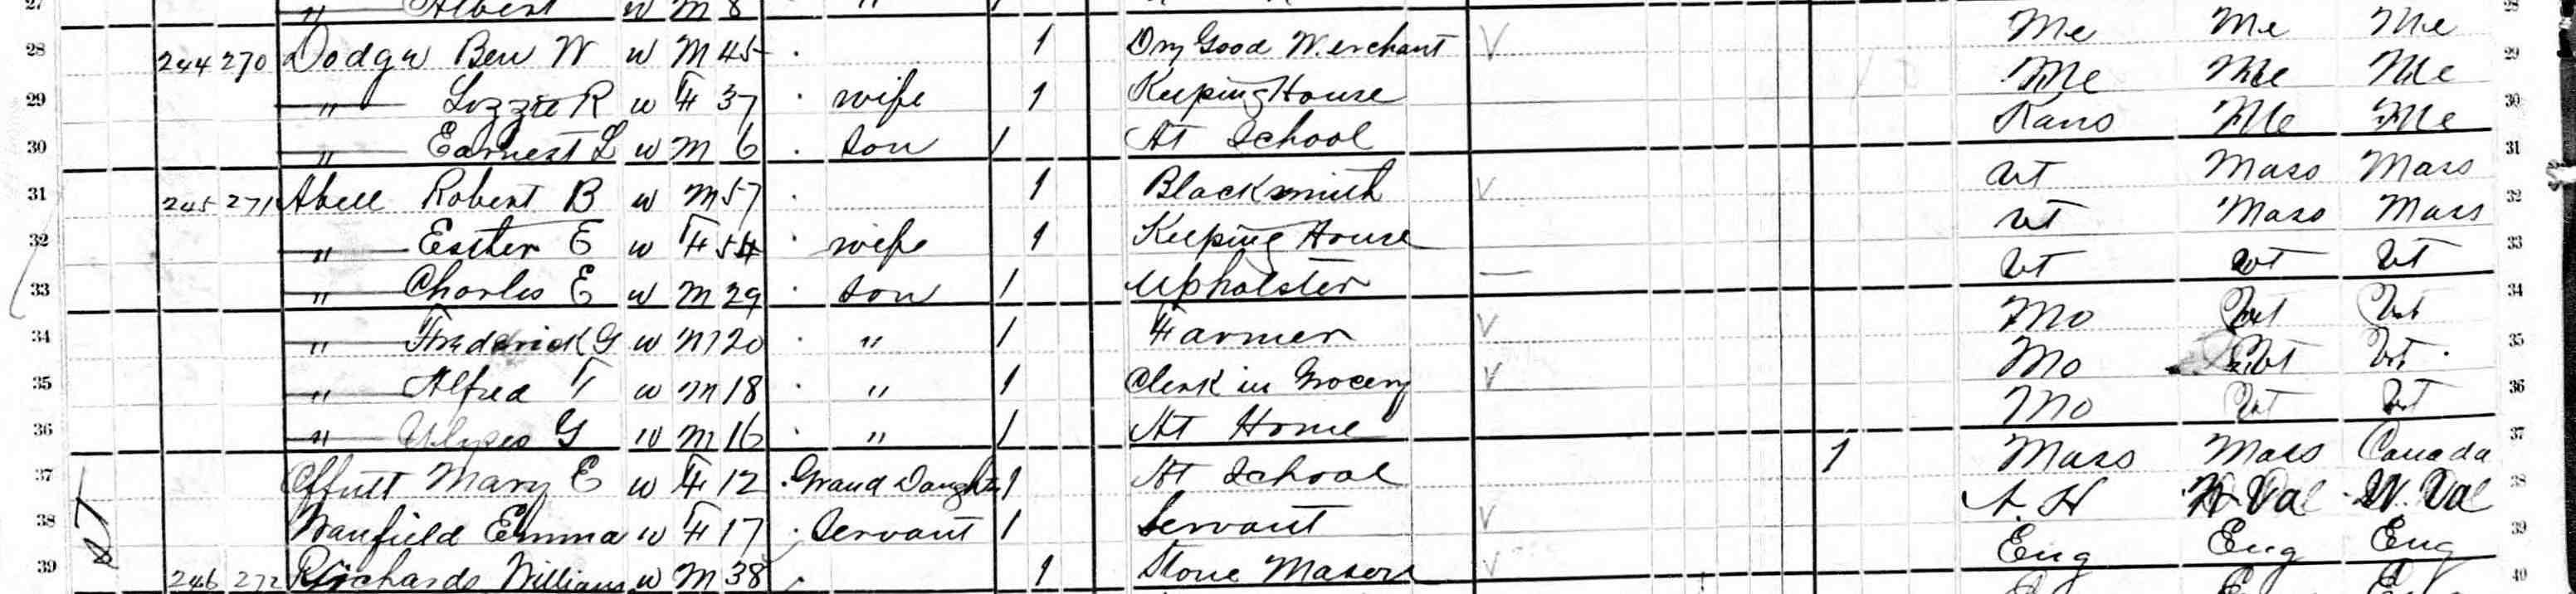 27 " Albert w M 8 " 1 28
28 244 270 Dodge Ben W w M 45 1 Dry Good Merchant Me Me Me 29
29 " Lizzie R w F 37 wife 1 Keeping House Me Me Me 30
30 " Earnest L w M 6 son 1 At School Kans Me Me 31
31 245 271 Abell Robert B w M 57 1 Blacksmith Vt Mass Mass 32
32 " Esther E w F 54 wife 1 Keeping House Vt Mass Mass 33
33 " Charles E w M 29 son 1 Upholster Vt Vt Vt 34
34 " Frederick G w M 20 " 1 Farmer Mo Vt Vt 35
35 " Alfred T w M 18 " 1 Clerk in Grocery Mo Vt Vt 36
36 " Ulyses G w M 16 " 1 At Home Mo Vt Vt 37
37 Offutt Mary E w F 12 Grand Daughter 1 At School 1 Mass Mass Canada 38
38 Emma w F 17 Servant 1 Servant N. H 39
39 246 272 Richards William w M 38 1 Stone Mason Eng Eng Eng 40